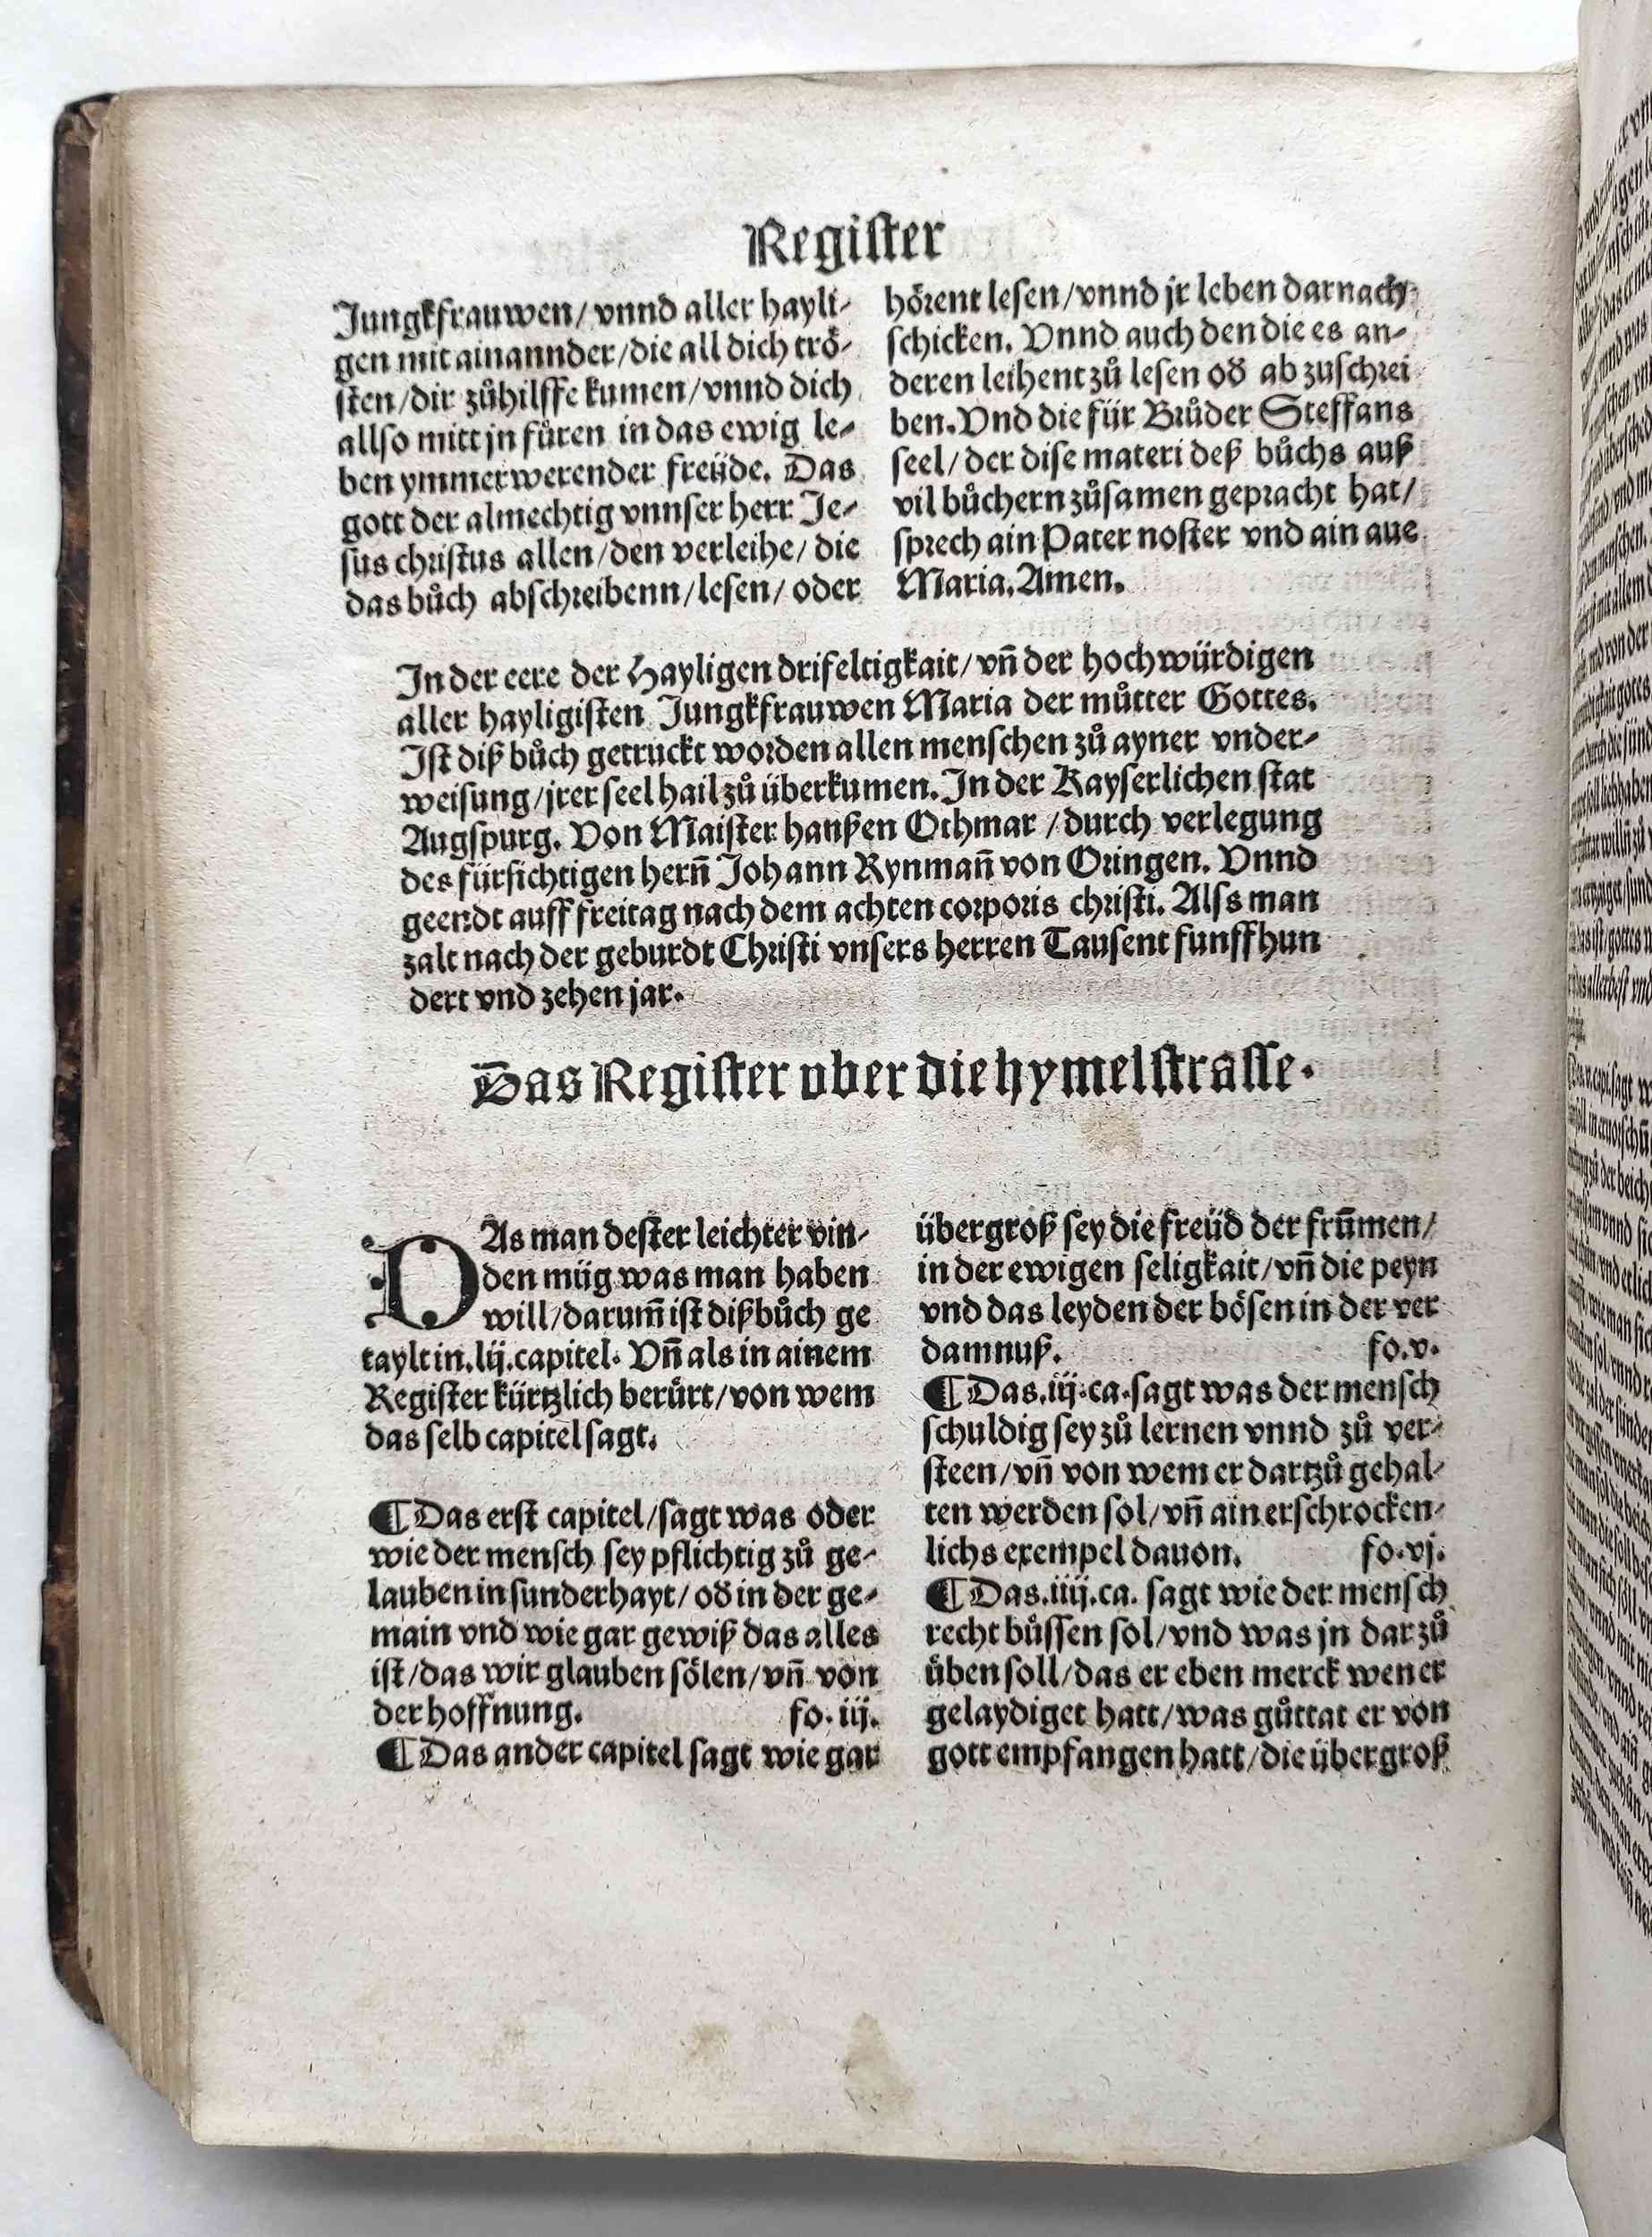 Register
Jungkfrauwen/ vnnd aller hayli-
gen mit ainannder/die all dich trö-
sten/dir zůhilffe kumen/vnnd dich
allso mitt jn fůren in das ewig le-
ben ymmerwerender freüde. Das
gott der almechtig vnnser herr Je-
sus christus allen/den verleihe/ die
das bůch abschreibenn/lesen/ oder
hörent lesen/vnnd jr leben darnach
schicken. Vnnd auch den die es an-
deren leihent zů lesen od ab zuschrei
ben. Vnd die für Brůder Steffans
seel/ der dise materi deß bůchs auß
vil bůchern zůsamen gepracht hat/
sprech ain Pater noster vnd ain aue
Maria. Amen.
In der eere der Hayligen drifeltigkait/ vn̄ der hochwürdigen
aller hayligisten Jungkfrauwen Maria der můtter Gottes.
Ist diß bůch getruckt worden allen menschen zů ayner vnder-
weisung/jrer seel hail zů überkumen. In der Kayserlichen stat
Augspurg. Von Maister hanßen Othmar /durch verlegung
des fürsichtigen hern̄ Johann Rynman̄ von Oringen. Vnnd
geendt auff freitag nach dem achten corporis christi. Alss man
zalt nach der geburdt Christi vnsers herren Tausent funffhun
dert vnd zehen jar.
Das Register vber die hymelstrasse.
DAs man dester leichter vin-
den müg was man haben
will/darum̄ ist diß bůch ge
taylt in.lij.capitel. Vn̄ als in ainem
Register kürtzlich berůrt/von wem
das selb capitel sagt.
¶ Das erst capitel/sagt was oder
wie der mensch sey pflichtig zů ge-
lauben in sunderhayt/ od in der ge-
main vnd wie gar gewiß das alles
ist/das wir glauben sölen/vn̄ von
der hoffnung. fo.iij.
¶ Das ander capitel sagt wie gar
übergroß sey die freüd der frūmen/
in der ewigen seligkait/vn̄ die peyn
vnd das leyden der bösen in der ver
damnuß. fo.v.
¶ Das.iij.ca.sagt was der mensch
schuldig sey zů lernen vnnd zů ver-
steen/vn̄ von wem er dartzů gehal-
ten werden sol/vn̄ ain erschrocken-
lichs exempel dauon. fo.vj.
¶ Das.iiij.ca. sagt wie der mensch
recht bůssen sol/vnd was jn dar zů
üben soll/das er eben merck wen er
gelaydiget hatt/was gůttat er von
gott empfangen hatt/die übergroß